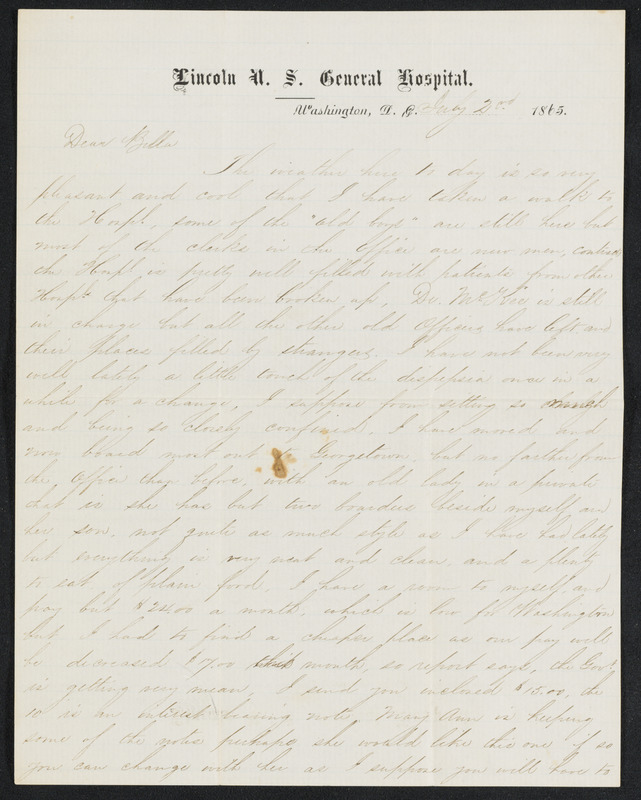 Lincoln U. S. General Hospital.
Washington, D. C. July 2nd 1865.
Dear Bella
The weather here to day is so very
pleasant and cool that I have taken a walk to
the Hospt, some of the "old boys" are still here but
most of the clerks in the Office are new men,
the Hospt is pretty well filled with patients from other
Hospts that have been broken up, Dr. McKee is still
in charge but all the other old Officers have left and
their places filled by strangers. I have not been very
well lately a little touch of the dispepsia once in a
while for a change, I suppose from setting so much
and being so closely confined, I have moved and
now board most out to Georgetown, but no farther from
the Office than before, with an old lady in a private
that is she has but two boarders beside myself and
her son, not quite as much style as I have had lately
but everything is very neat and clean, and a plenty
to eat of plain food, I have a room to myself, and
pay but $24.00 a month, which is low for Washington
but I had to find a cheaper place as our pay will
be decreased $7.00 this month, so report says, the Govt
is getting very mean, I send you inclosed $15.00, the
10 is an interest bearing note, Mary Ann is keeping
some of the notes perhaps she would like this one if so
you can change with her as I suppose you will have to